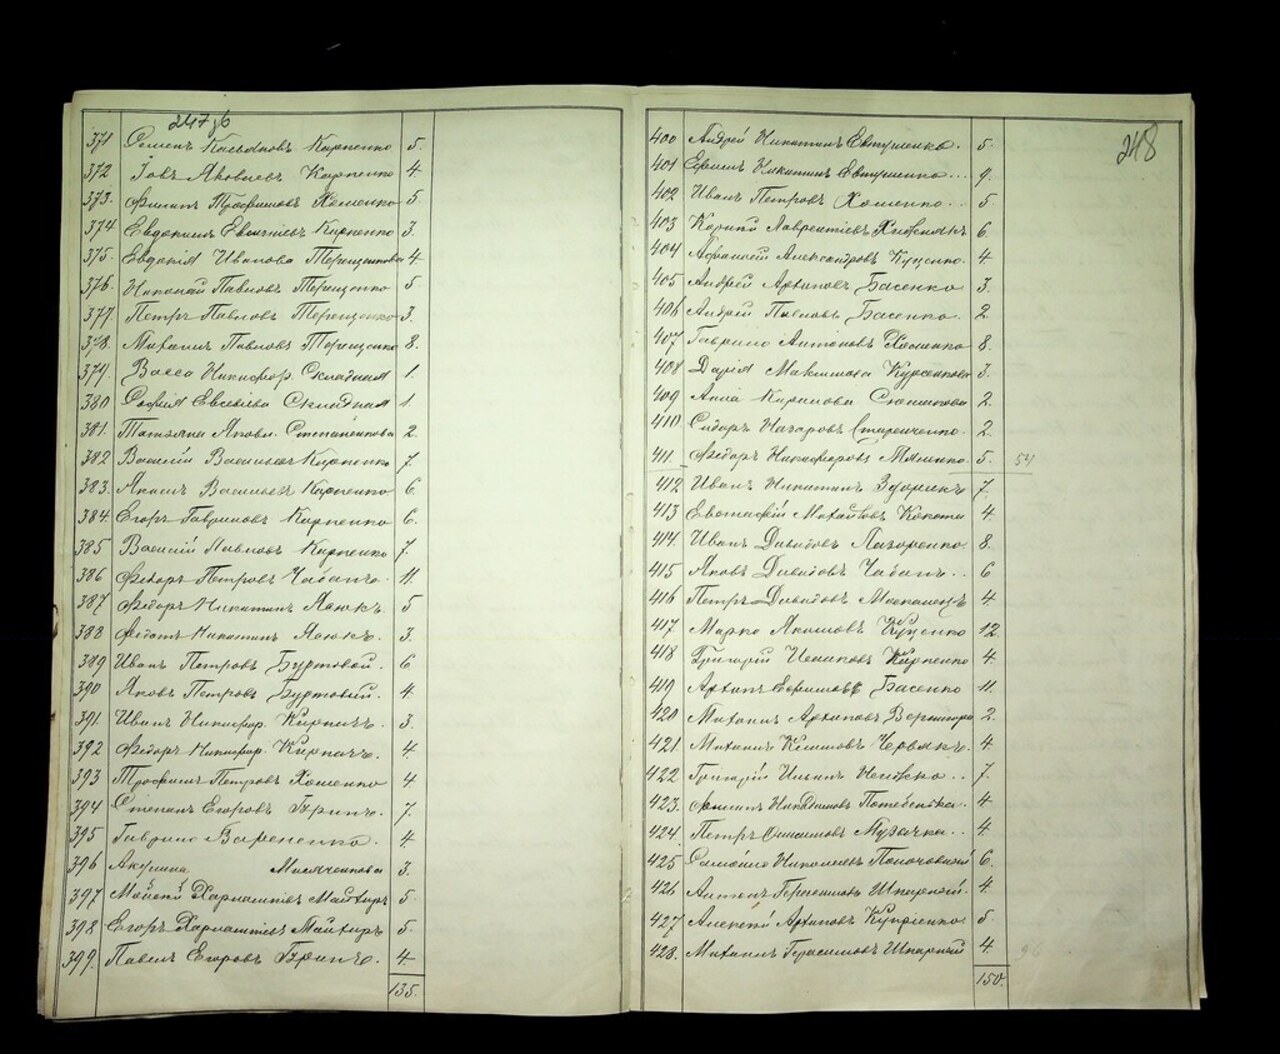 247 об
371 Семенъ Касьяновъ Карпенко 5.
372 Іовъ Яковлевъ Карпенко 4
373. Филипъ Трофимовъ Хоменко 5
374 Евдокимъ Карпенко 3.
375. Евдокія Иванова Терещенкова 4
376. Николай Павловъ Терещенко 5
377. Петръ Павловъ Терещенко 3.
378. Михаилъ Павловъ Терещенко 8.
379. Васса Никифор. Складная 1.
380 Софія Евсевіева Складная 1.
381. Татьяна Яковл. Степаненкова 2.
382 Василій Васильевъ Карпенко 7.
383. Акимъ Васильевъ Карпенко 6.
384. Егоръ Гавриловъ Карпенко 6.
385 Василій Павловъ Карпенко 7.
386 Федоръ Петровъ Чабанъ. 11.
387 Федоръ Никитинъ Асюкъ. 5
388 Федотъ Никитинъ Асюкъ. 3.
389 Иванъ Петровъ Буртовой. 6
390 Яковъ Петровъ Буртовый. 4.
391. Иванъ Никифор. Кирпичъ. 3.
392 Федоръ Никифор. Кирпичъ. 4.
393 Трофимъ Петровъ Хоменко 4
394 Степанъ Егоровъ Бринъ. 7.
395 Гаврило Варененко. 4
396 Акулина 3.
397 Мойсей Харлампіевъ Майборъ 5.
398 Егоръ Харлампіевъ Майборъ 5.
399. Павелъ Егоровъ Бринъ. 4
135.
248
400 Андрей Никитинъ Евтушенко. 5.
401 Ефимъ Никитинъ Евтушенко... 9.
402 Иванъ Петровъ Хоменко.. 5
403 Корній Лаврентіевъ Хижнякъ 6.
404 Афанасій Александровъ Куценко. 4
405 Андрей Архиповъ Басенко 3.
406 Андрей Павловъ Басенко. 2.
407 Гаврило Антоновъ Хоменко 8.
408 Дарія Максимова 3.
409 Анна Карпова 2.
410 Сидоръ Назаровъ Старенченко. 2.
411. Федоръ Никифоровъ 5. 54
412 Иванъ Никитинъ 7.
413 Евстафій Михайловъ 4.
414. Иванъ Давидовъ Лазоренко. 8.
415 Яковъ Давидовъ Чабанъ.. 6
416 Петръ Давидовъ 4.
417 Марко Якимовъ Куценко 12.
418 Григорій Карпенко 4.
419 Архипъ Ефимовъ Басенко 11.
420 Михаилъ Архиповъ 2.
421. Михаилъ Климовъ Червякъ. 4.
422 Григорій Ильинъ 7.
423. Филипъ 4
424. Петръ Онисимовъ Музычка.. 4
425 Самойло Николаевъ 6.
426 Антонъ Герасимовъ Шкарпій. 4.
427 Алексѣй Архиповъ Купріенко 5.
428. Михаилъ Герасимовъ Шкарпій 4. 96
150.